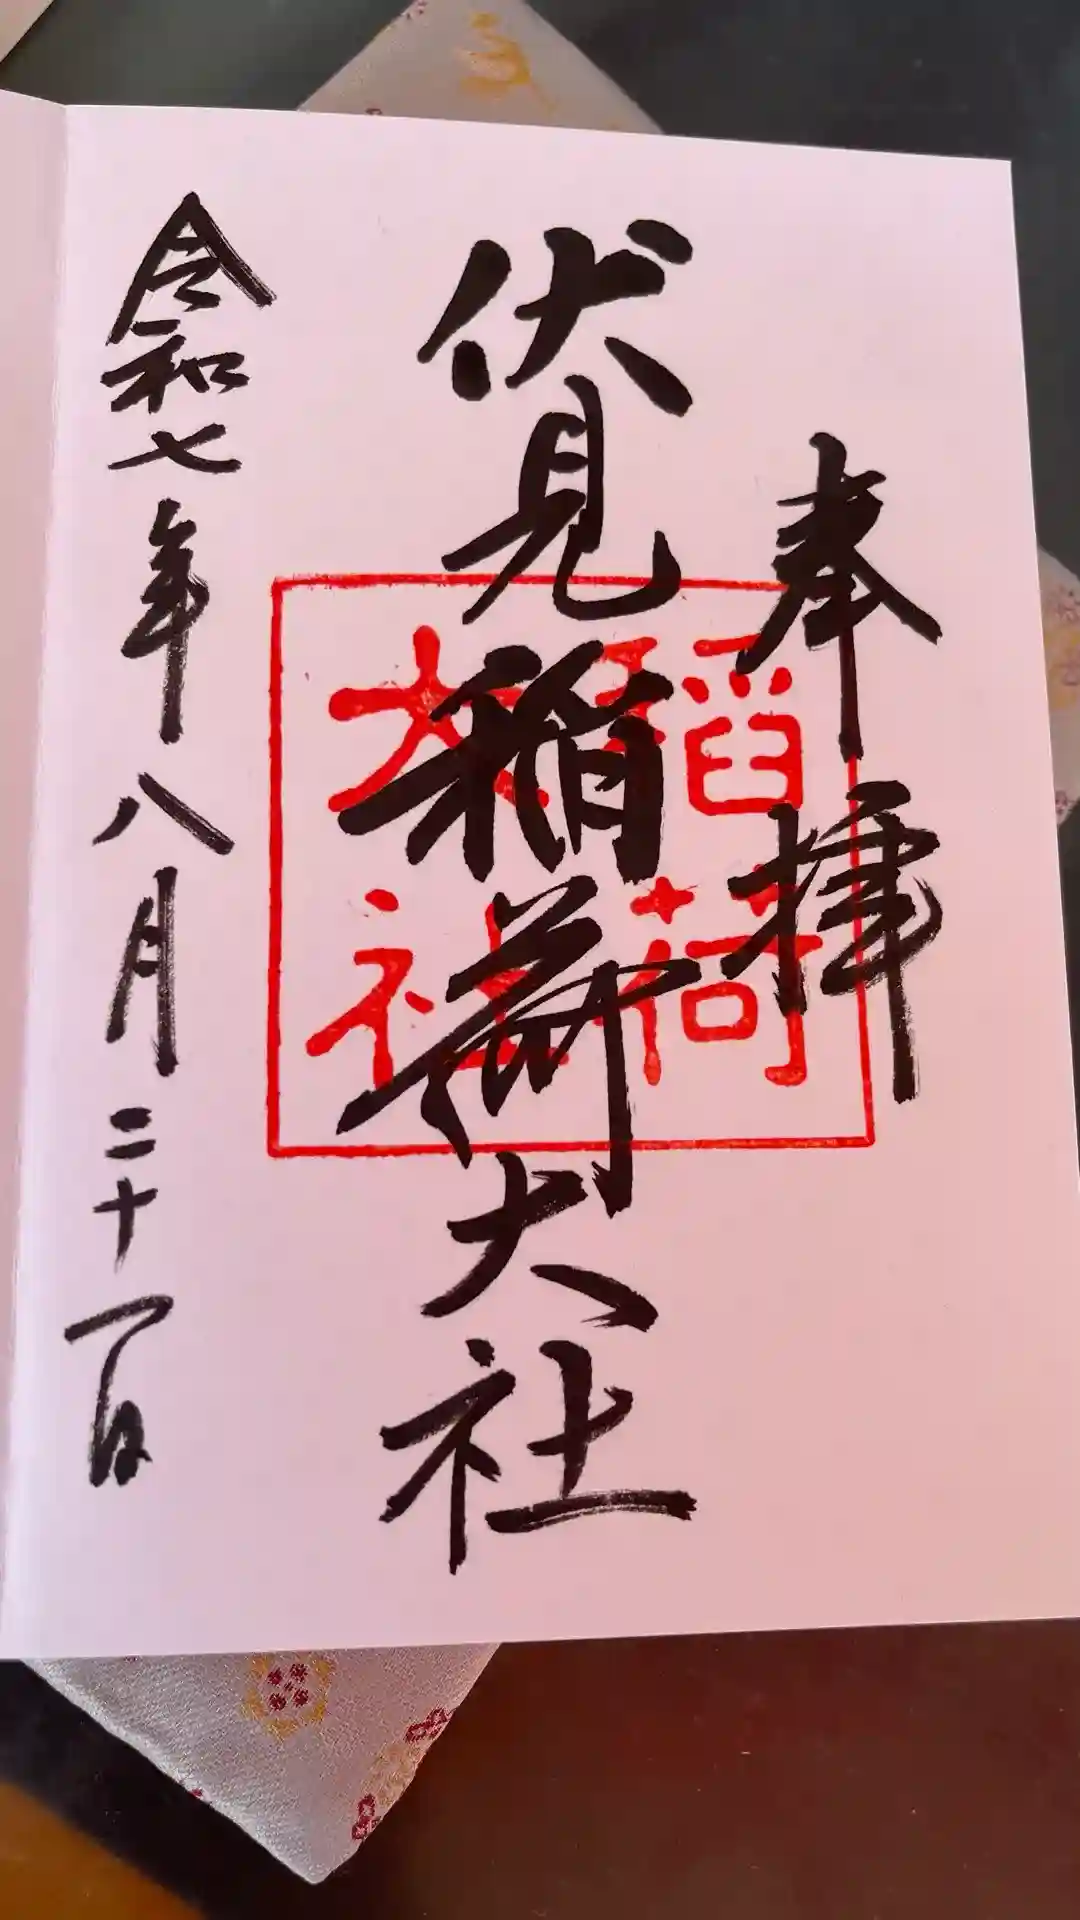 奉拝
伏見稲荷大社
稻荷
大社
令和七年八月二十一日